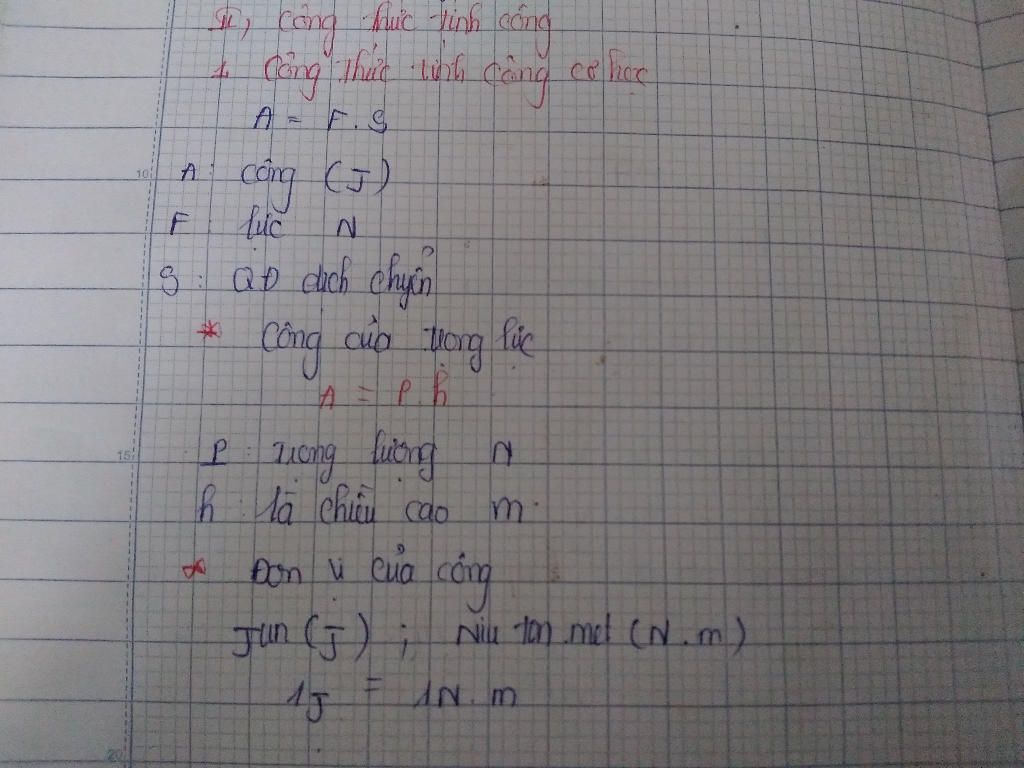 II, công thức tính công
1. Công thức tính công cơ học
A = F.S
10
A: công (J)
F: lực N
S: QĐ dịch chyển
* Công của trọng lực
A = P h
15
P: trọng lượng N
h: là chiều cao m
* Đơn vị của công
Jun (J) ; Niu ton.met (N.m)
1J = 1N.m
20